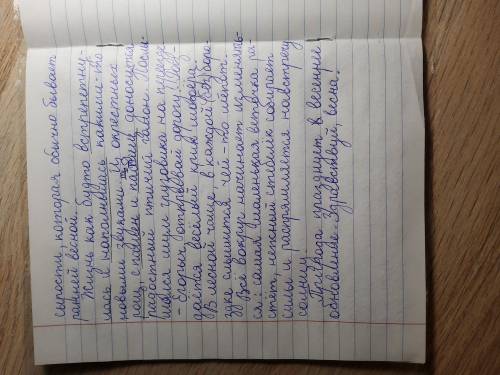 сырости, которая обычно бывает
ранней весной.
Жизнь как будто встрепену-
лась и наполнилась какими-то
новыми звуками. Из окрестных
рощ, с полей и пашней доносится
радостный птичий гомон. Послы-
шался шум грузовика на
- Егорик, открывай дорогу! -
даётся весёлый крик шофёра.
В лесной чаще, в каждой бороз-
дке слышится чей-то шёпот.
Всё вокруг начинает изменять-
ся: самая маленькая веточка ра-
стёт, нежный стебелик собирает
силы и распрямляется навстречу
солнцу.
Природа празднует в весенний
обновление. Здравствуй, весна!